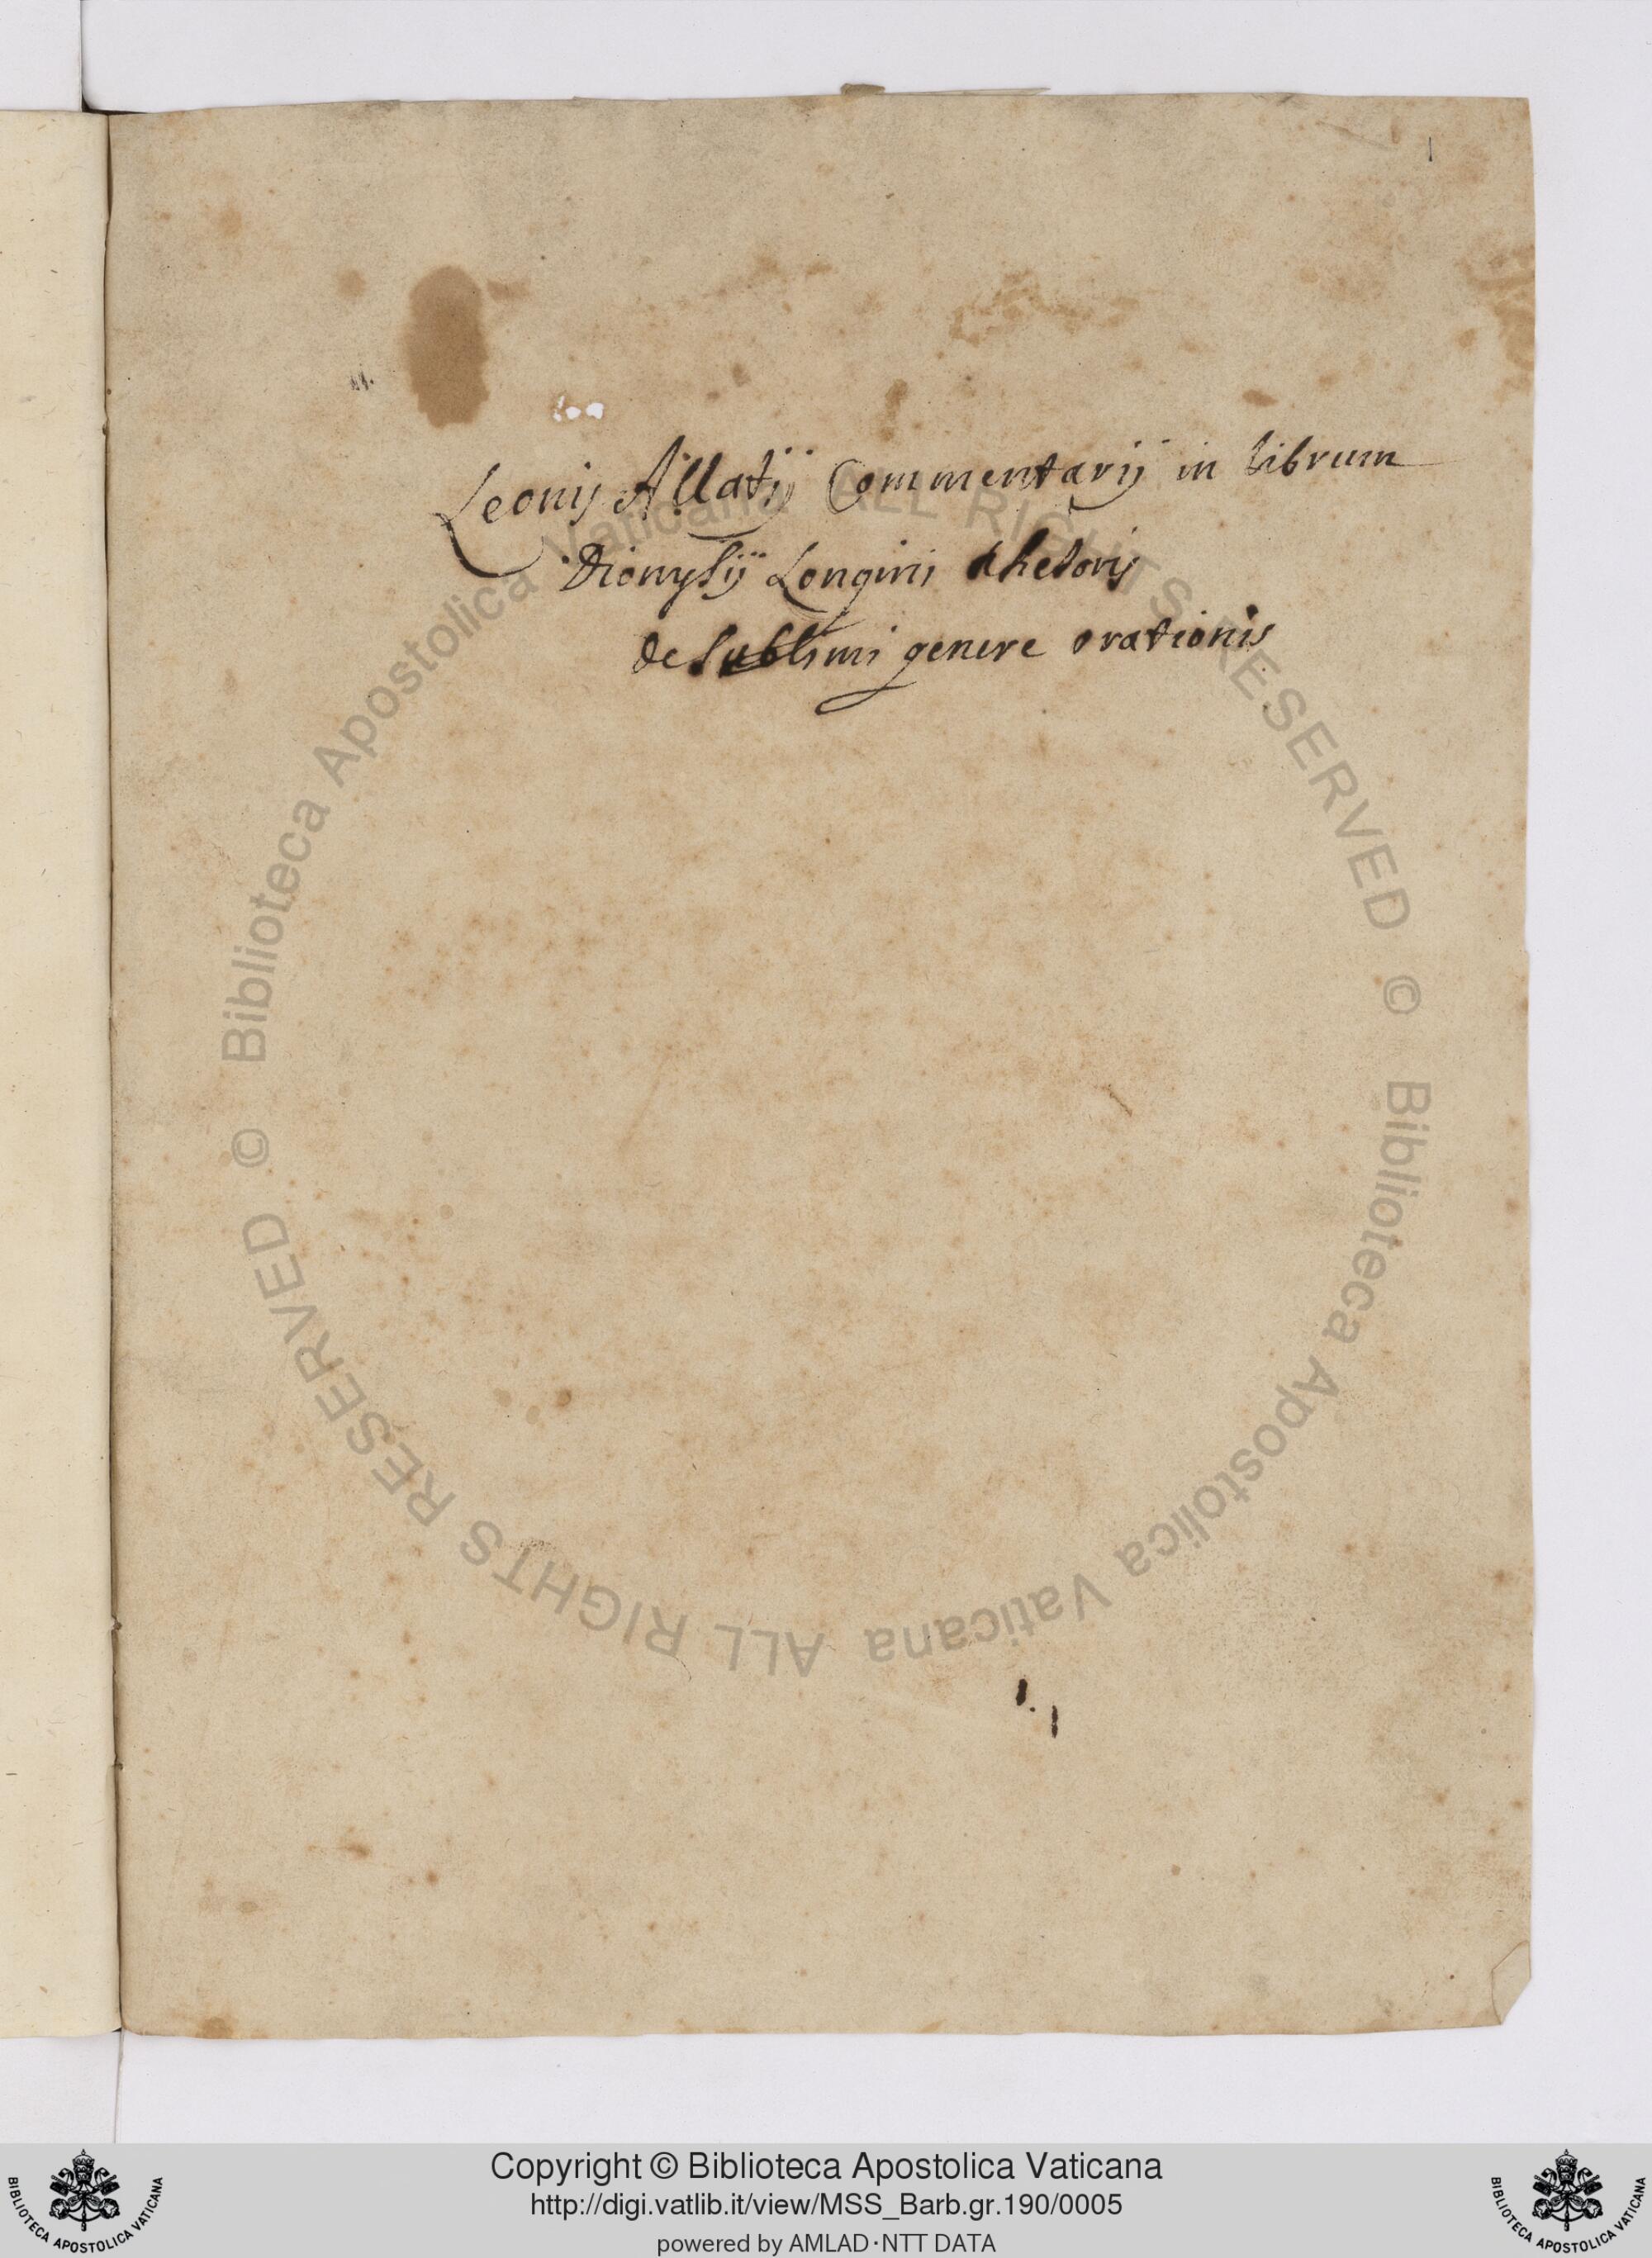 1
Leonis Allatij Commentarij in librum
Dionysij Longini rhetoris
de sublimi genere orationis
© Biblioteca Apostolica Vaticana ALL RIGHTS RESERVED
© Biblioteca Apostolica Vaticana ALL RIGHTS RESERVED
Copyright © Biblioteca Apostolica Vaticana
http://digi.vatlib.it/view/MSS_Barb.gr.190/0005
powered by AMLAD·NTT DATA
BIBLIOTECA APOSTOLICA VATICANA
BIBLIOTECA APOSTOLICA VATICANA